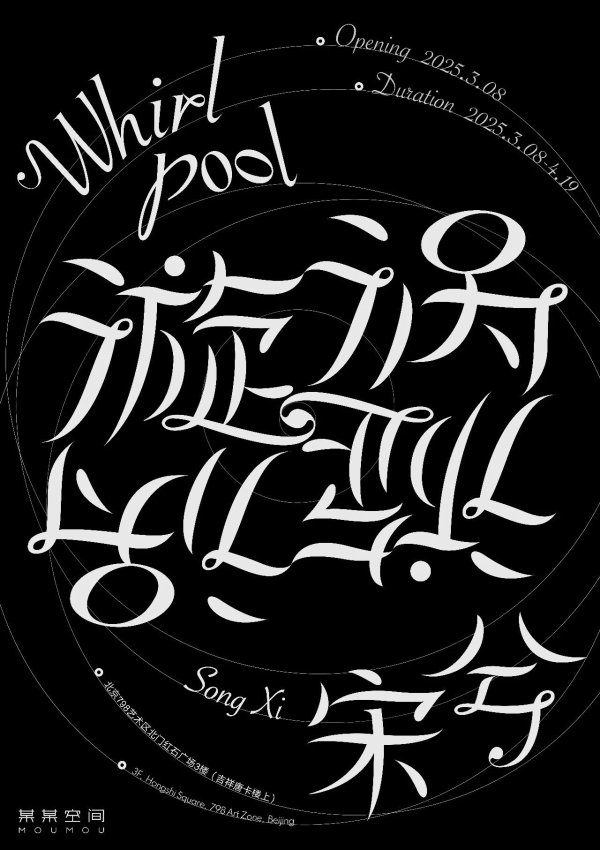 Whirl
pool
Opening 2025.3.08
Duration 2025.3.08-4.19
旋涡
旋涡
Song Xi
宋兮
北京798艺术区北门红石广场3楼（吉祥唐卡楼上）
3F, Hongshi Square, 798 Art Zone, Beijing
某某空间
MOUMOU